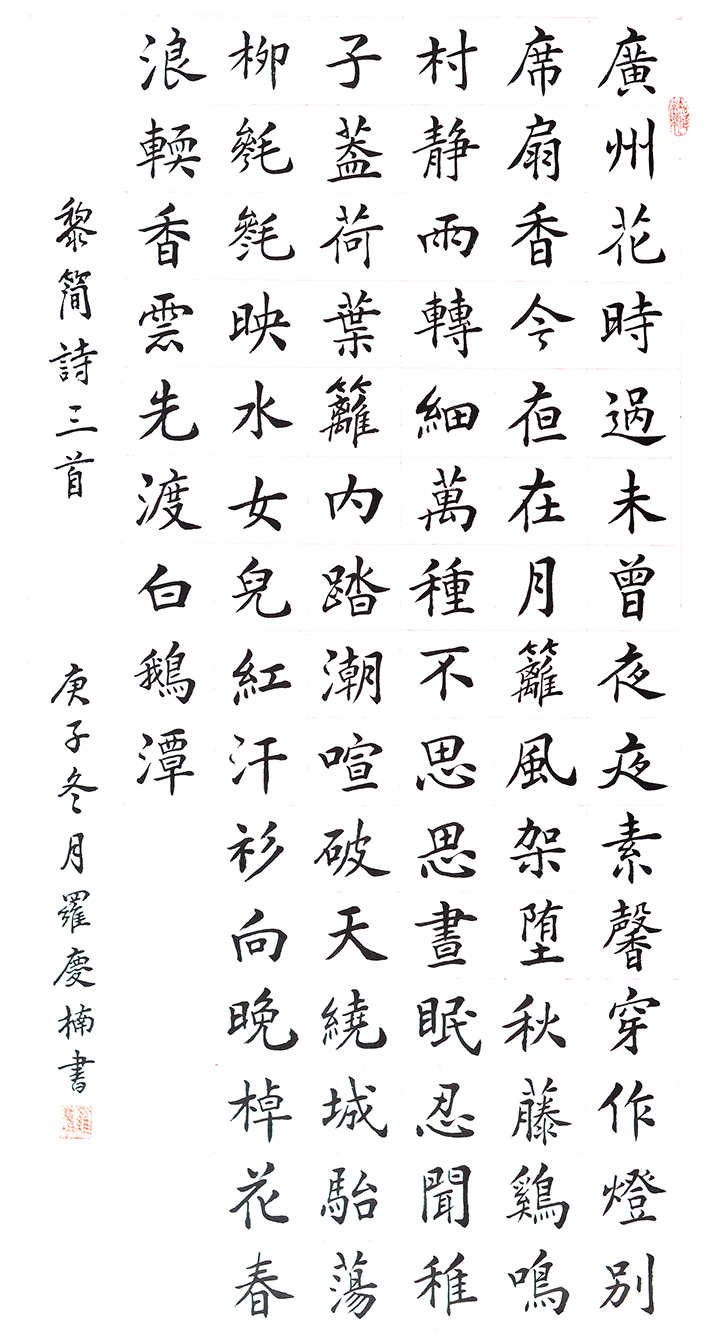 廣州花時過未曾夜夜素馨穿作燈別
席扇香今夜在月籬風架墮秋藤鷄鳴
村静雨轉細萬種不思思晝眠忍聞稚
子蓋荷葉籬内踏潮喧破天繞城駘蕩
柳毿毿映水女兒紅汗衫向晚棹花春
浪輭香雲先渡白鵝潭
黎簡詩三首
庚子冬月羅慶楠書